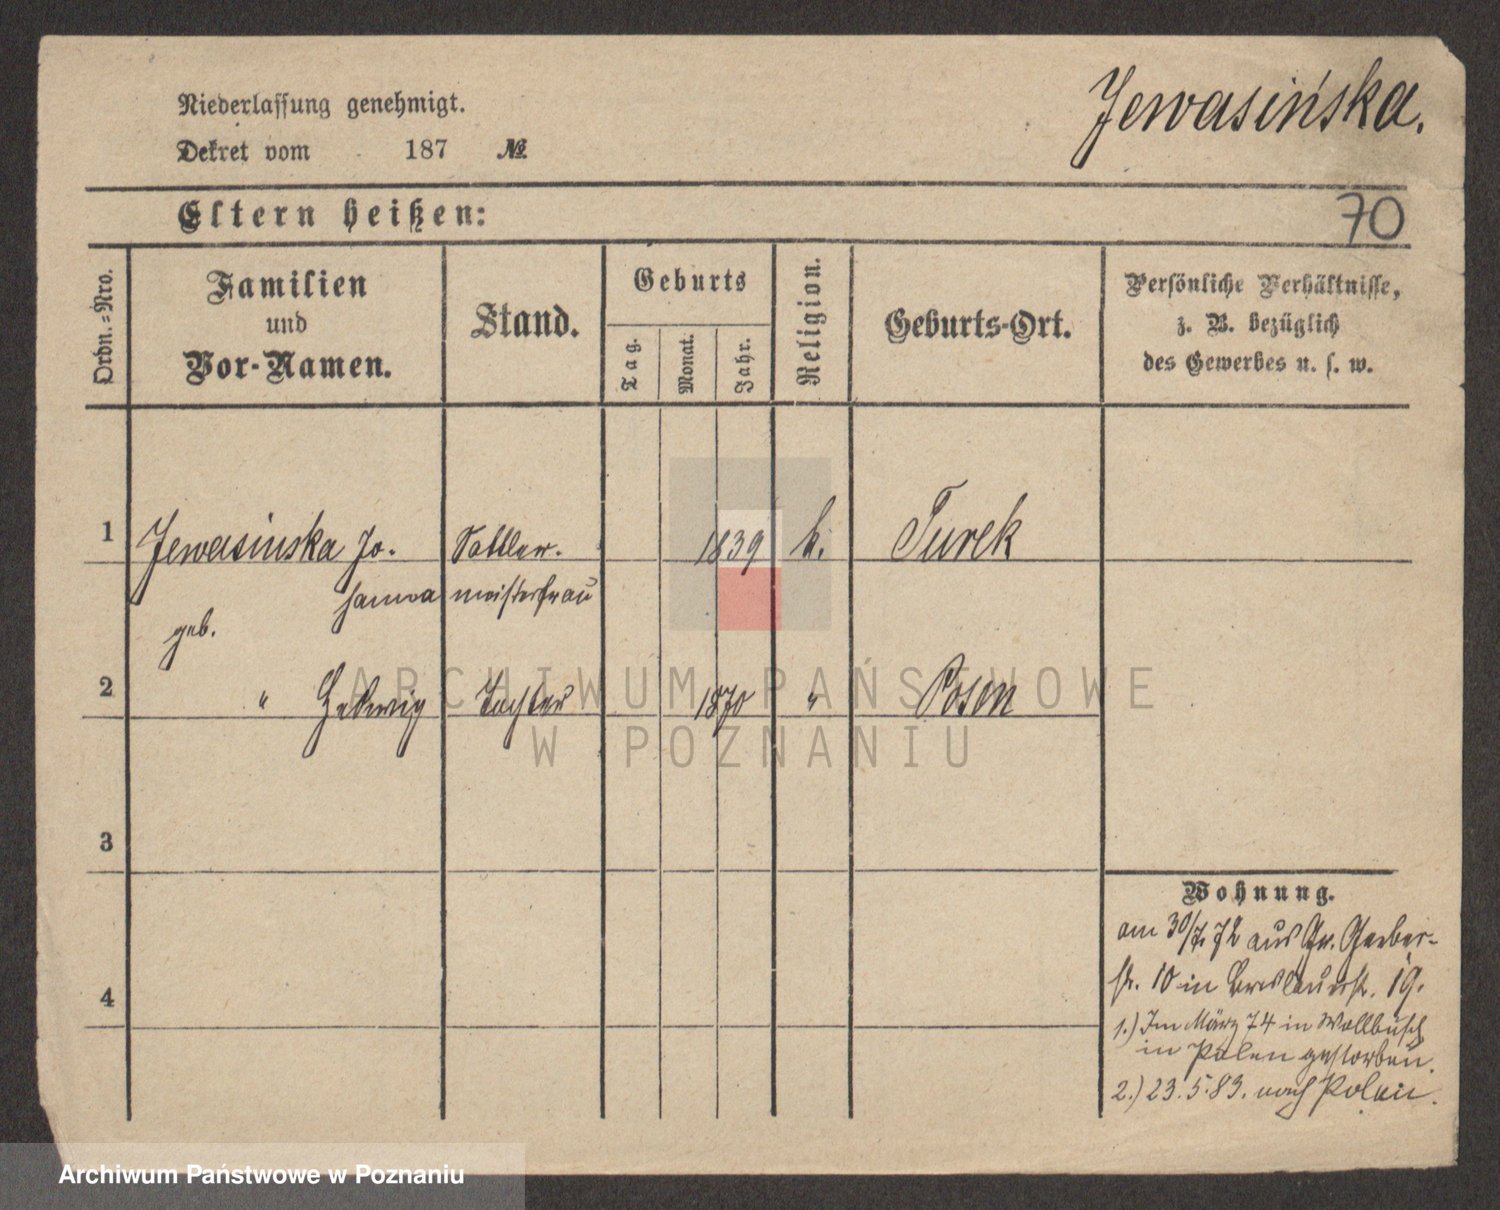 Jewasińska.
Niederlassung genehmigt.
Dekret vom 187 №
Eltern heißen:
70
Ordn.-Nro.
Familien
und
Vor-Namen.
Stand.
Geburts
Tag.
Monat.
Jahr.
Religion.
Geburts-Ort.
Persönliche Verhältnisse,
z. B. bezüglich
des Gewerbes u. s. w.
1 Jewasinska Jo- Sattler- 1839 k. Turek
hanna meisterfrau
geb.
2 " Hedwig Tochter 1870 " Posen
3
4
Wohnung.
am 30/7 72 aus Gr. Gerber-
str. 10 in Breslauerst. 19.
1.) Im März 74 in
in Polen gestorben.
2.) 23.5.83. nach Polen.
ARCHIWUM PAŃSTWOWE
W POZNANIU
Archiwum Państwowe w Poznaniu